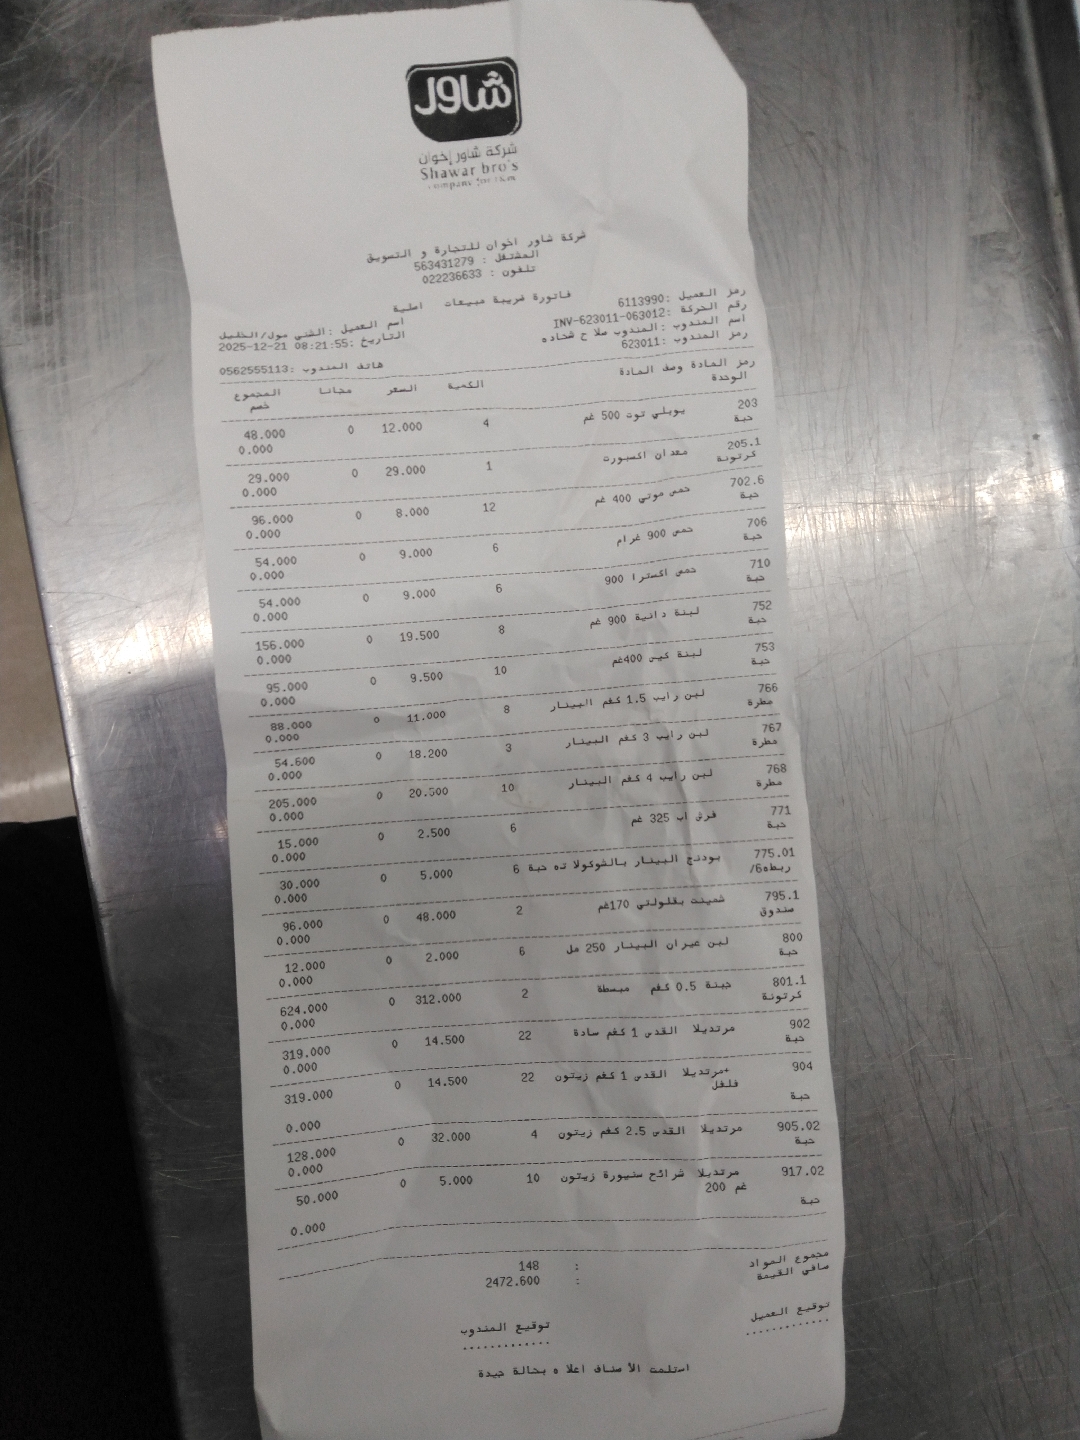 شاور
شركة شاور إخوان
Shawar bro's
شركة شاور اخوان للتجارة و التسويق
المشتغل : 563431279
تلفون : 022236633
فاتورة ضريبة مبيعات اصلية
رمز العميل :6113990
اسم العميل :الشني مول/الخليل
رقم الحركة :INV-623011-063012
التاريخ :2025-12-21 08:21:55
اسم المندوب :المندوب صلا ح شحاده
رمز المندوب :623011
هاتف المندوب :0562555113
رمز المادة وصف المادة الكمية السعر مجانا المجموع
الوحدة خصم
203 يوبلي توت 500 غم 4 12.000 0 48.000
حبة 0.000
205.1 مقدان اكسبورت 1 29.000 0 29.000
كرتونة 0.000
702.6 حمص موني 400 غم 12 8.000 0 96.000
حبة 0.000
706 حمص 900 غرام 6 9.000 0 54.000
حبة 0.000
710 حمص اكسترا 900 6 9.000 0 54.000
حبة 0.000
752 لبنة دانية 900 غم 8 19.500 0 156.000
حبة 0.000
753 لبنة كيس 400غم 10 9.500 0 95.000
حبة 0.000
766 لبن رايب 1.5 كغم البينار 8 11.000 0 88.000
مطرة 0.000
767 لبن رايب 3 كغم البينار 3 18.200 0 54.600
مطرة 0.000
768 لبن رايب 4 كغم البينار 10 20.500 0 205.000
مطرة 0.000
771 فرش اب 325 غم 6 2.500 0 15.000
حبة 0.000
775.01 بودنج البينار بالشوكولا ته حبة 6 5.000 0 30.000
ربطه6/ 0.000
795.1 شمينت بقلولتي 170غم 2 48.000 0 96.000
صندوق 0.000
800 لبن عيران البينار 250 مل 6 2.000 0 12.000
حبة 0.000
801.1 جبنة 0.5 كغم مبسطة 2 312.000 0 624.000
كرتونة 0.000
902 مرتديلا القدس 1 كغم سادة 22 14.500 0 319.000
حبة 0.000
904 مرتديلا القدس 1 كغم زيتون+ 22 14.500 0 319.000
فلفل
حبة 0.000
905.02 مرتديلا القدس 2.5 كغم زيتون 4 32.000 0 128.000
حبة 0.000
917.02 مرتديلا شرائح سنيورة زيتون 10 5.000 0 50.000
200 غم
حبة 0.000
مجموع المواد : 148
صافي القيمة : 2472.600
توقيع العميل توقيع المندوب
............. .............
استلمت الأ صناف اعلا ه بحالة جيدة